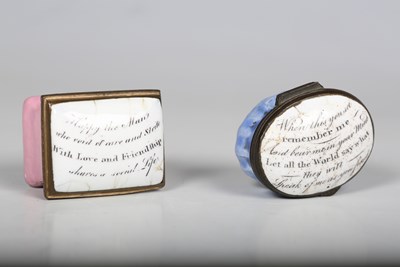 Happy the Man
who void of care and Strife
With Love and Friendship
shares a Life
When this you see
remember me
And bear me in your Mind
Let all the World say what
they will
Speak of me as you